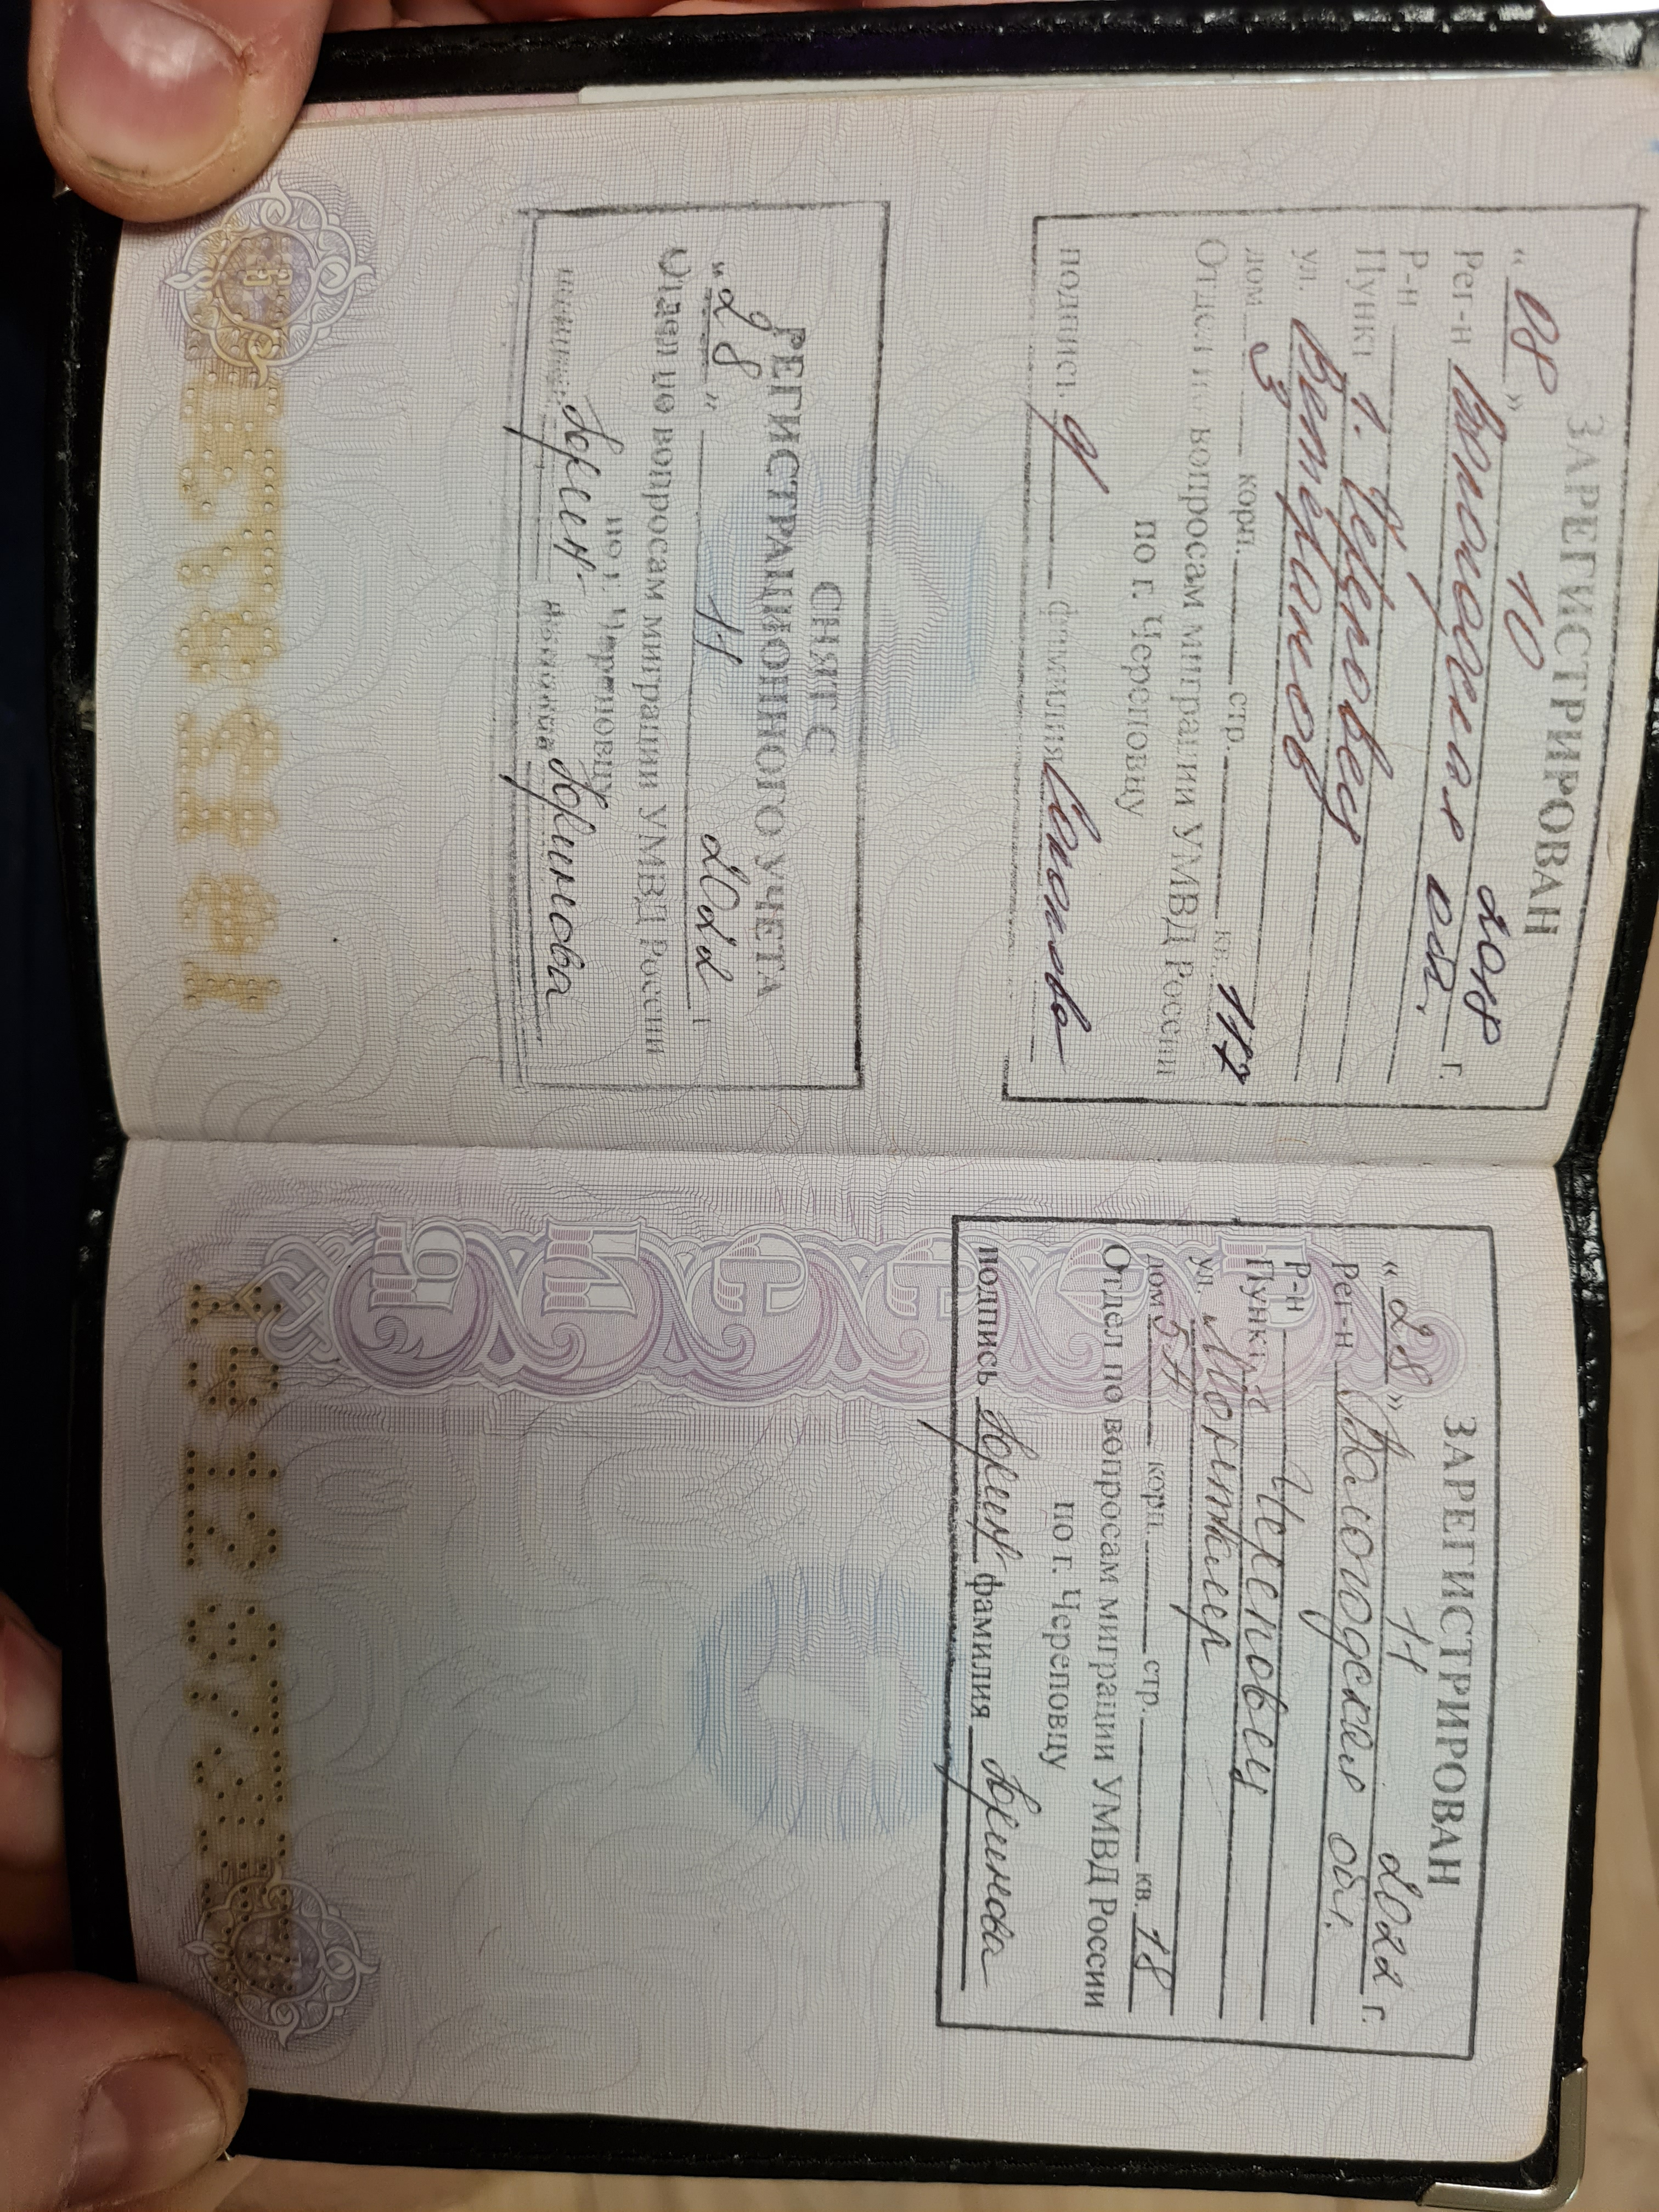 ЗАРЕГИСТРИРОВАН
« 08 » 10 2018 г.
Рег-н Вологодская обл.
Р-н
Пункт г. Череповец
ул. Ветеранов
дом 3 корп. стр. кв. 117
Отдел по вопросам миграции УМВД России
по г. Череповцу
подпись фамилия
СНЯТ С
РЕГИСТРАЦИОННОГО УЧЕТА
« 28 » 11 2022 г.
Отдел по вопросам миграции УМВД России
по г. Череповцу
ЗАРЕГИСТРИРОВАН
« 28 » 11 2022 г.
Рег-н Вологодская обл.
Р-н
Пункт г. Череповец
ул. Монтклер
дом 5А корп. стр. кв. 18
Отдел по вопросам миграции УМВД России
по г. Череповцу
подпись фамилия